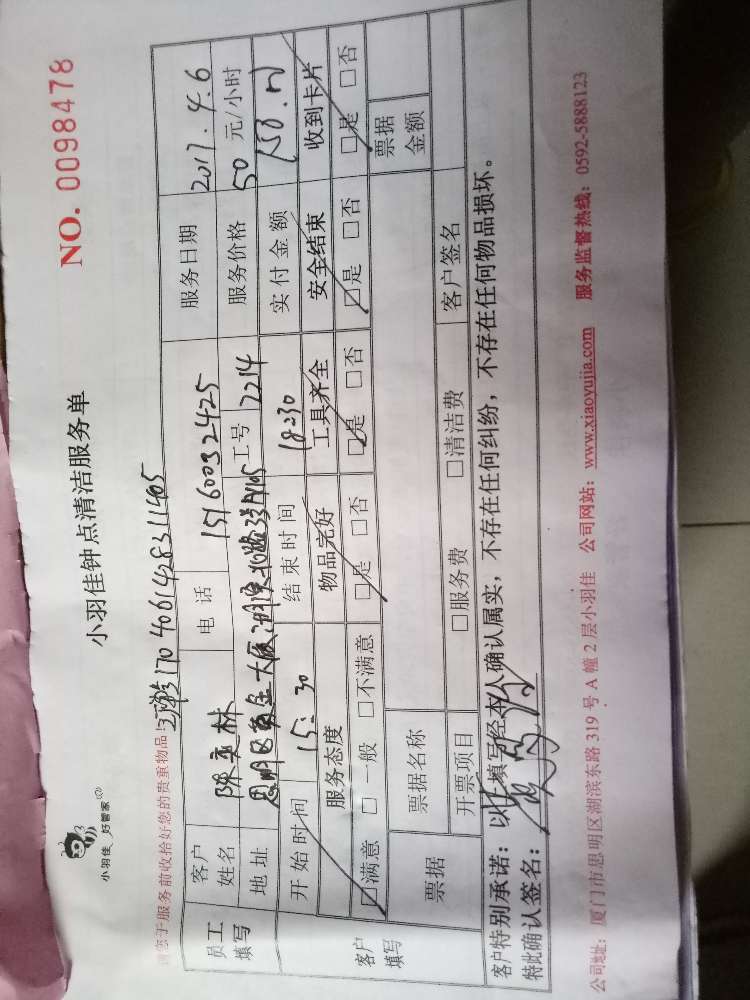 小羽佳 好管家
小羽佳钟点清洁服务单
NO. 0098478
请您于服务前收拾好您的贵重物品!
1704061428311405
员工填写 客户姓名 陈亚林 电话 15160032425 服务日期 2017.4.6
地址 思明区黄金大厦湖滨北路 工号 2214 服务价格 50 元/小时
开始时间 15:30 结束时间 18:30 实付金额 150.
客户填写 服务态度 物品完好 工具齐全 安全结束 收到卡片
□满意 □一般 □不满意 □是 □否 □是 □否 □是 □否 □是 □否
票据 票据名称 票据金额
开票项目 □服务费 □清洁费 客户签名
客户特别承诺：以上填写经本人确认属实，不存在任何纠纷，不存在任何物品损坏。
特此确认签名：
公司地址: 厦门市思明区湖滨东路 319 号 A 幢 2 层小羽佳 公司网站: www.xiaoyujia.com 服务监督热线: 0592-5888123